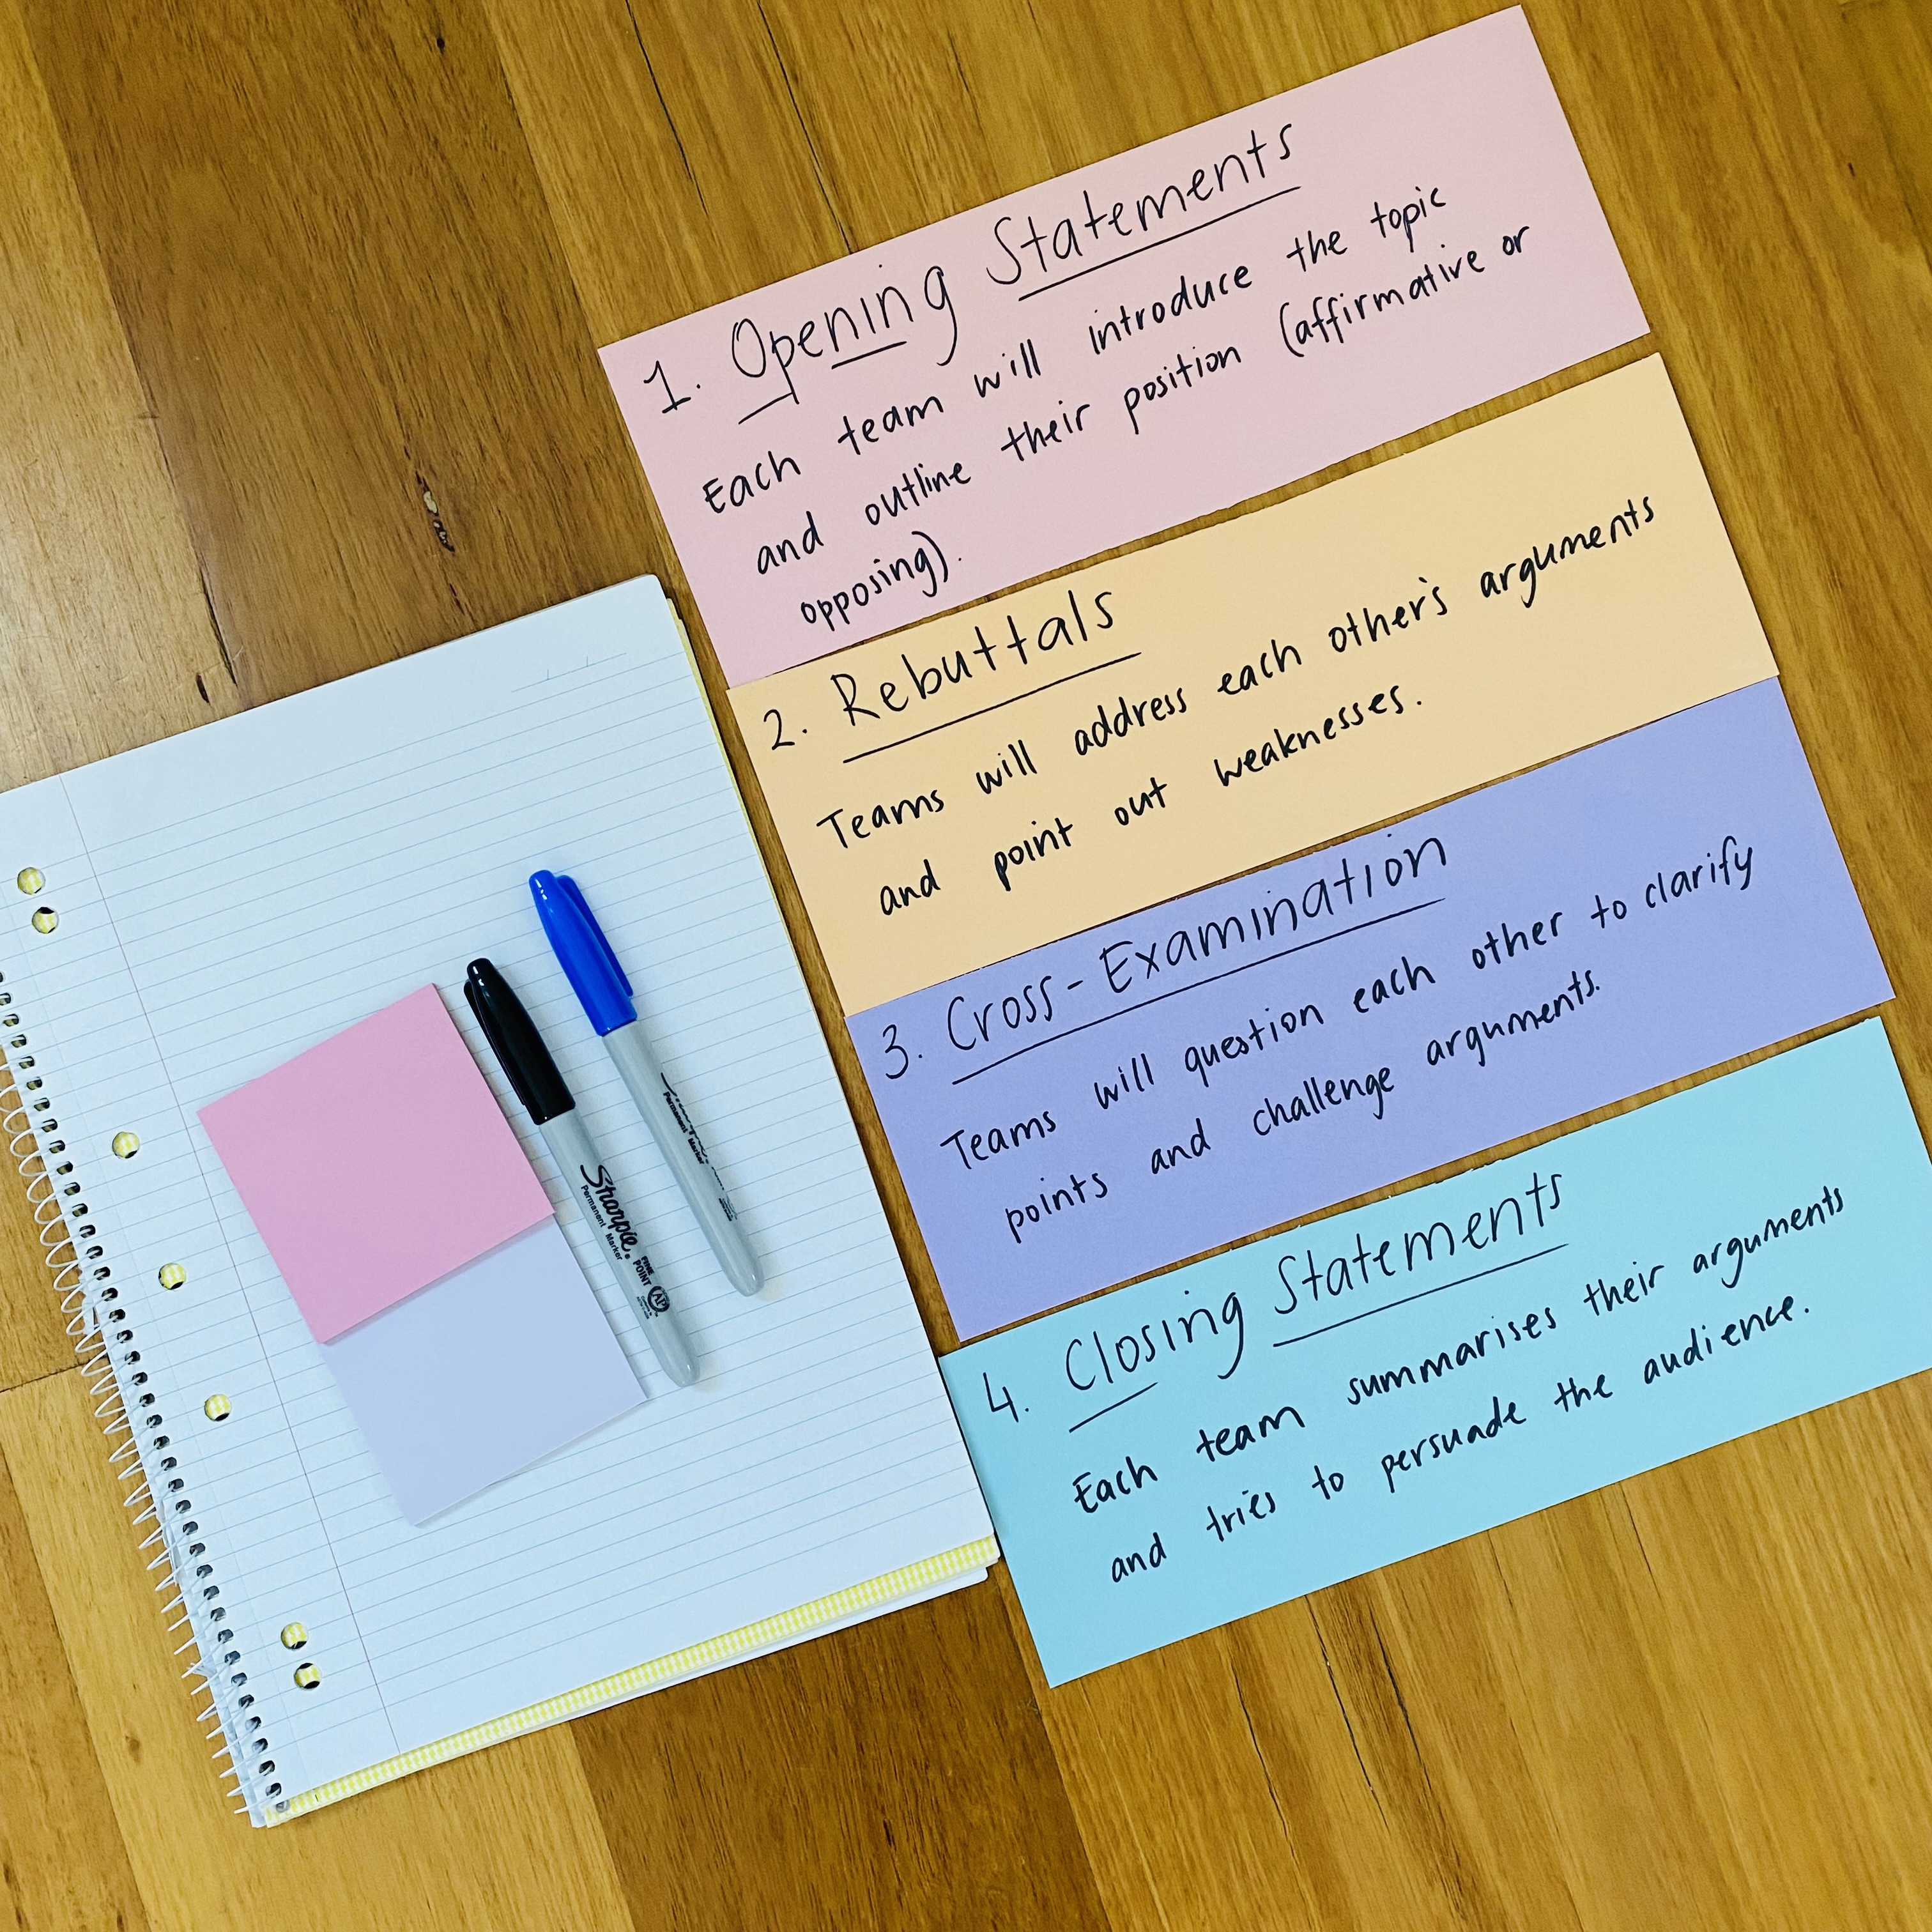 1. Opening Statements
Each team will introduce the topic
and outline their position (affirmative or
opposing).
2. Rebuttals
Teams will address each other's arguments
and point out weaknesses.
3. Cross-Examination
Teams will question each other to clarify
points and challenge arguments.
4. Closing Statements
Each team summarises their arguments
and tries to persuade the audience.
Sharpie
Permanent Marker
FINE
POINT
AP
Permanent Marker